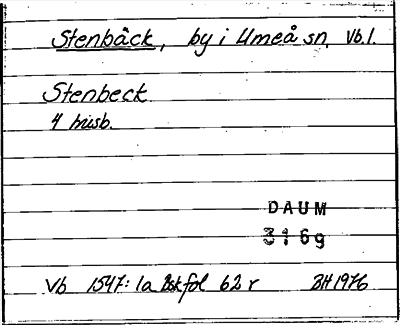 Stenbäck, by i Umeå sn, Vb.l.
Stenbeck
4 husb.
DAUM
3169
Vb 1547:1a Bskfol 62 r BH 1976